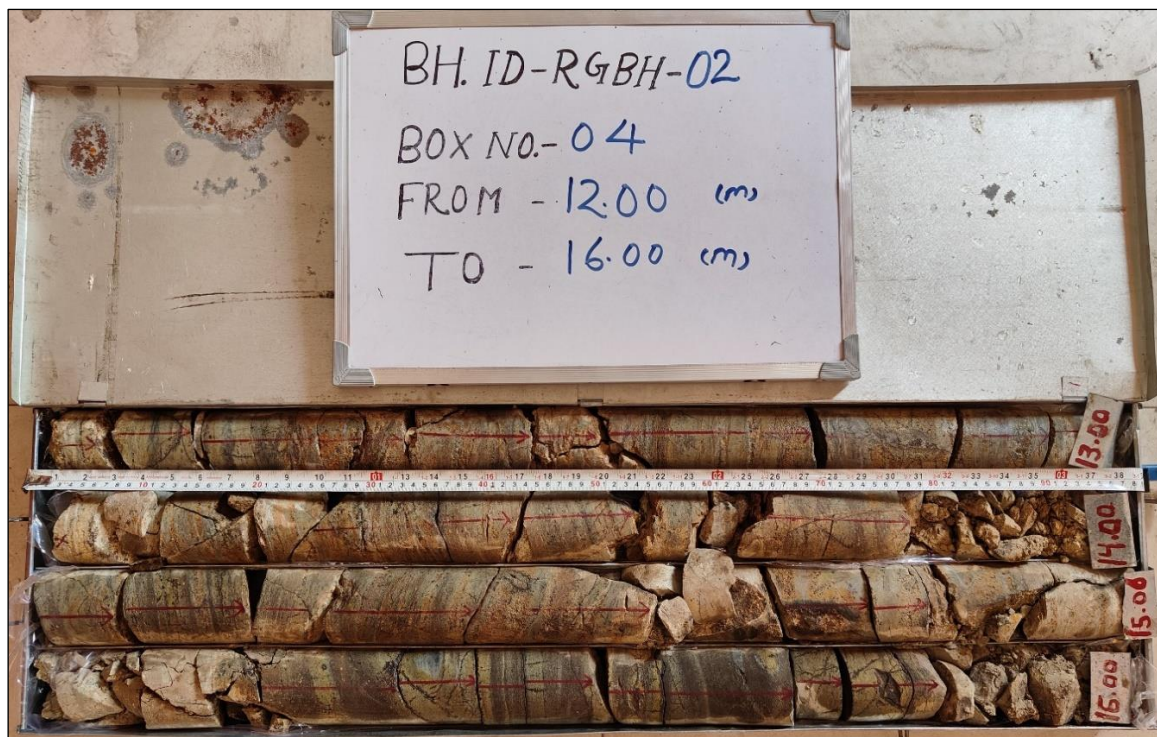 BH. ID-RGBH-02
BOX NO.- 04
FROM - 12.00 (m)
TO - 16.00 (m)
13.00
14.00
15.00
16.00